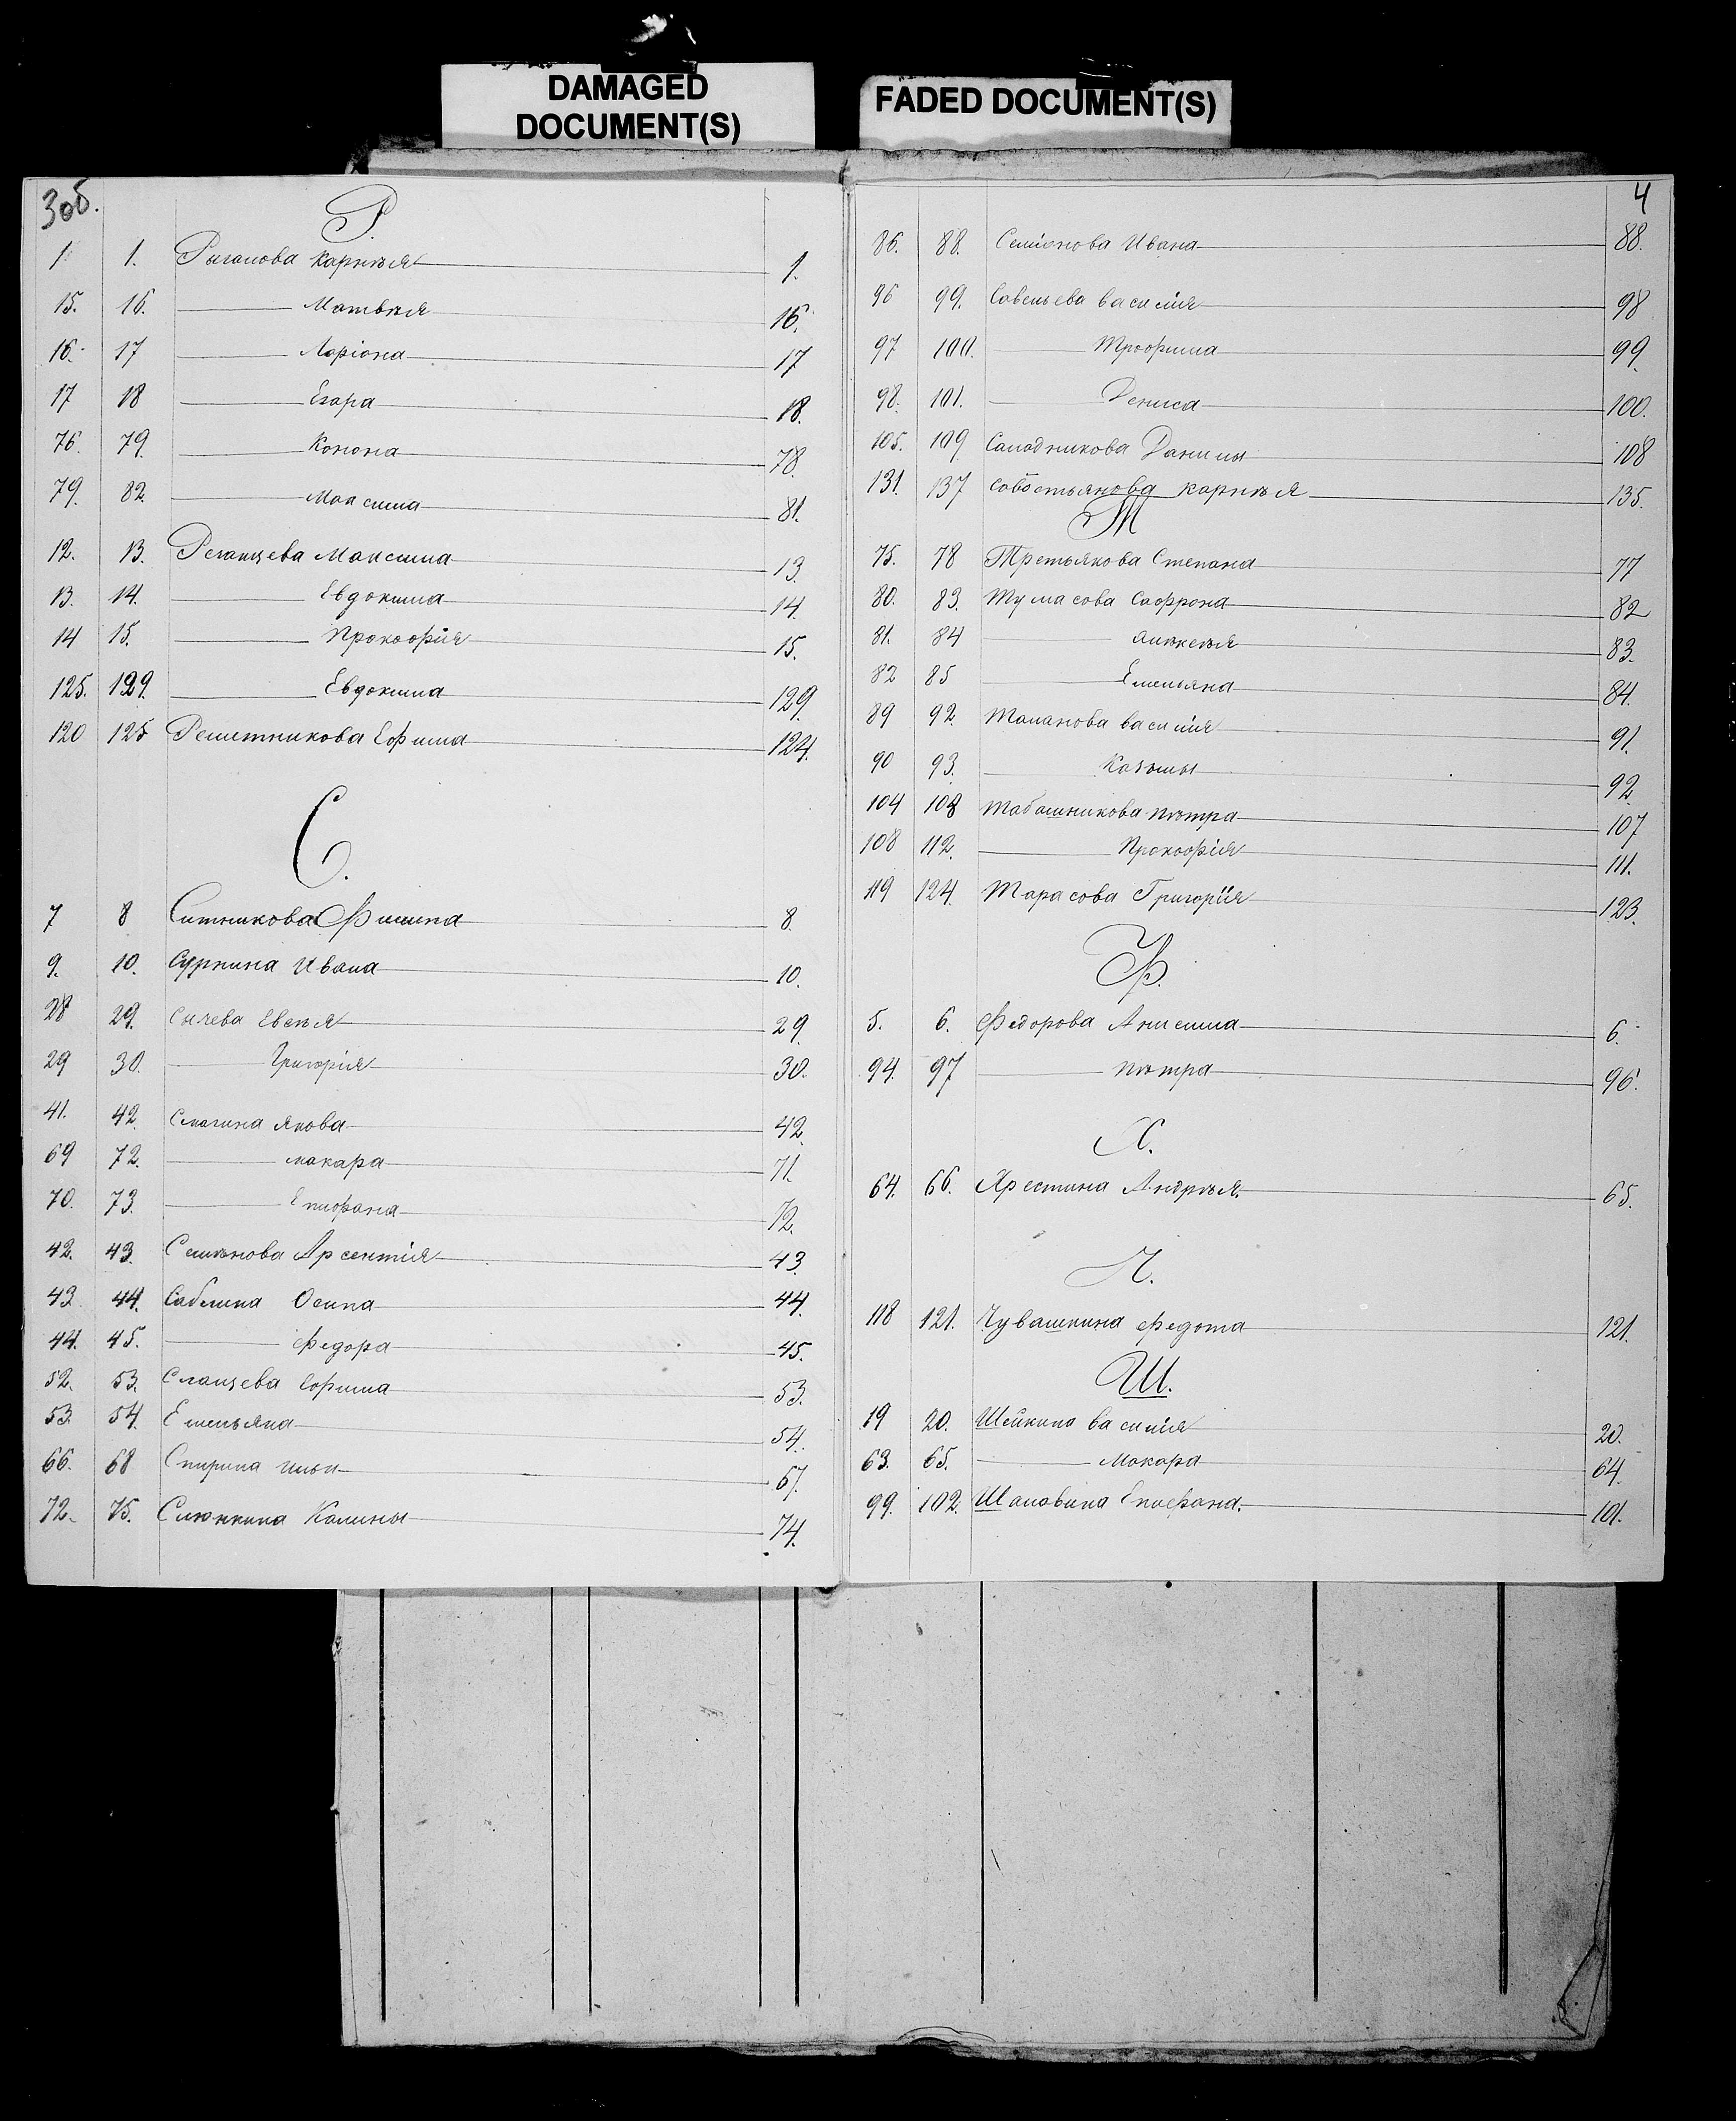 DAMAGED
DOCUMENT(S)
FADED DOCUMENT(S)
3об.
Р.
1. 1. Рыгалова Карнѣя 1.
15. 16. Матвѣя 16.
16. 17 Ларіона 17
17 18 Егора 18.
76. 79. Конона 78.
79. 82 Максима 81.
12. 13. Максима 13.
13. 14. Евдокима 14.
14 15. Прокофія 15.
125. 129. Евдокима 129.
120 125 Решетникова Ефима 124.
С.
7 8 Ситникова Филипа 8.
9. 10. Суркина Ивана 10.
28 29. Сычева Евсѣя 29.
29 30. Григорія 30.
41. 42. Смагина Якова 42.
69 72. Макара 71.
70. 73. Епифана 72.
42. 43. Семѣнова Арсентія 43.
43 44. Саблина Осипа 44.
44. 45. Федора 45.
52. 53. Сланцева Ефима 53.
53. 54. Емельяна 54.
66. 68 Спирина Ильи 67.
72. 75. Слюнкина Калины 74.
4
86. 88. Семіонова Ивана 88.
96 99. Савельева Василія 98
97 100. Трофима 99.
98. 101. Дениса 100.
105. 109 Салодникова Данилы 108
131. 137 Совостьянова Карнѣя 135.
Т
75. 78 Третьякова Степана 77
80. 83. Тумасова Сафрона 82
81. 84 Алѣксѣя 83.
82 85 Емельяна 84.
89 92 Таланова Василія 91.
90 93. Казьмы 92.
104 108 Табашникова Пѣтра 107
108 112. Прокофія 111.
119 124. Тарасова Григорія 123.
Ф.
5. 6. Федорова Анисима 6.
94. 97 Пѣтра 96.
Х.
64. 66. Хрестина Андрѣя. 65.
Ч.
118 121. Чувашкина Федота 121.
Ш.
19 20. Шейкина Василія 20.
63. 65. Макара 64.
99. 102. Шаловина Епифана. 101.